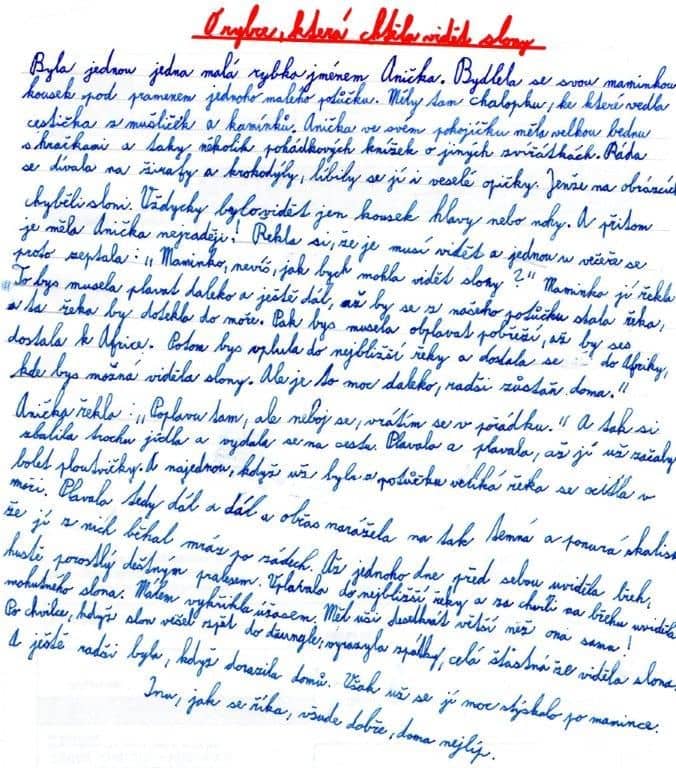 O rybce, která chtěla vidět slony
Byla jednou jedna malá rybka jménem Anička. Bydlela se svou maminkou
kousek pod pramenem jednoho malého potůčku. Měly tam chaloupku, ke které vedla
cestička z mušliček a kamínků. Anička ve svém pokojíčku měla velkou bednu
s hračkami a taky několik pohádkových knížek o jiných zvířátkách. Ráda
se dívala na žirafy a krokodýly, líbily se jí i veselé opičky. Jenže na obrázcích
chyběli sloni. Vždycky bylo vidět jen kousek hlavy nebo nohy. A přitom
je měla Anička nejraději! Řekla si, že je musí vidět a jednou u večeře se
proto zeptala: „Maminko, nevíš, jak bych mohla vidět slony?" Maminka jí řekla
„To bys musela plavat daleko a ještě dál, až by se z našeho potůčku stala řeka,
a ta řeka by dotekla do moře. Pak bys musela obplavat pobřeží, až by ses
dostala k Africe. Potom bys vplula do nejbližší řeky a dostala se do Afriky,
kde bys možná viděla slony. Ale je to moc daleko, radši zůstaň doma."
Anička řekla: „Poplavu tam, ale neboj se, vrátím se v pořádku." A tak si
sbalila trochu jídla a vydala se na cestu. Plavala a plavala, až jí už začaly
bolet ploutvičky. A najednou, když už byla z potůčku veliká řeka se ocitla v
moři. Plavala tedy dál a dál a občas narážela na tak temná a ponurá skaliska
že jí z nich běhal mráz po zádech. Až jednoho dne před sebou uviděla břeh,
hustě porostlý deštným pralesem. Vplavala do nejbližší řeky a za chvíli na břehu uviděla
mohutného slona. Málem vykřikla úžasem. Měl uši dvakrát větší než ona sama!
Po chvilce, když slon věšel zpět do džungle, vyrazyla zpátky, celá šťastná že viděla slona.
A ještě radši byla, když dorazila domů. Však už se jí moc stýskalo po mamince.
Inu, jak se říká, všude dobře, doma nejlíp.